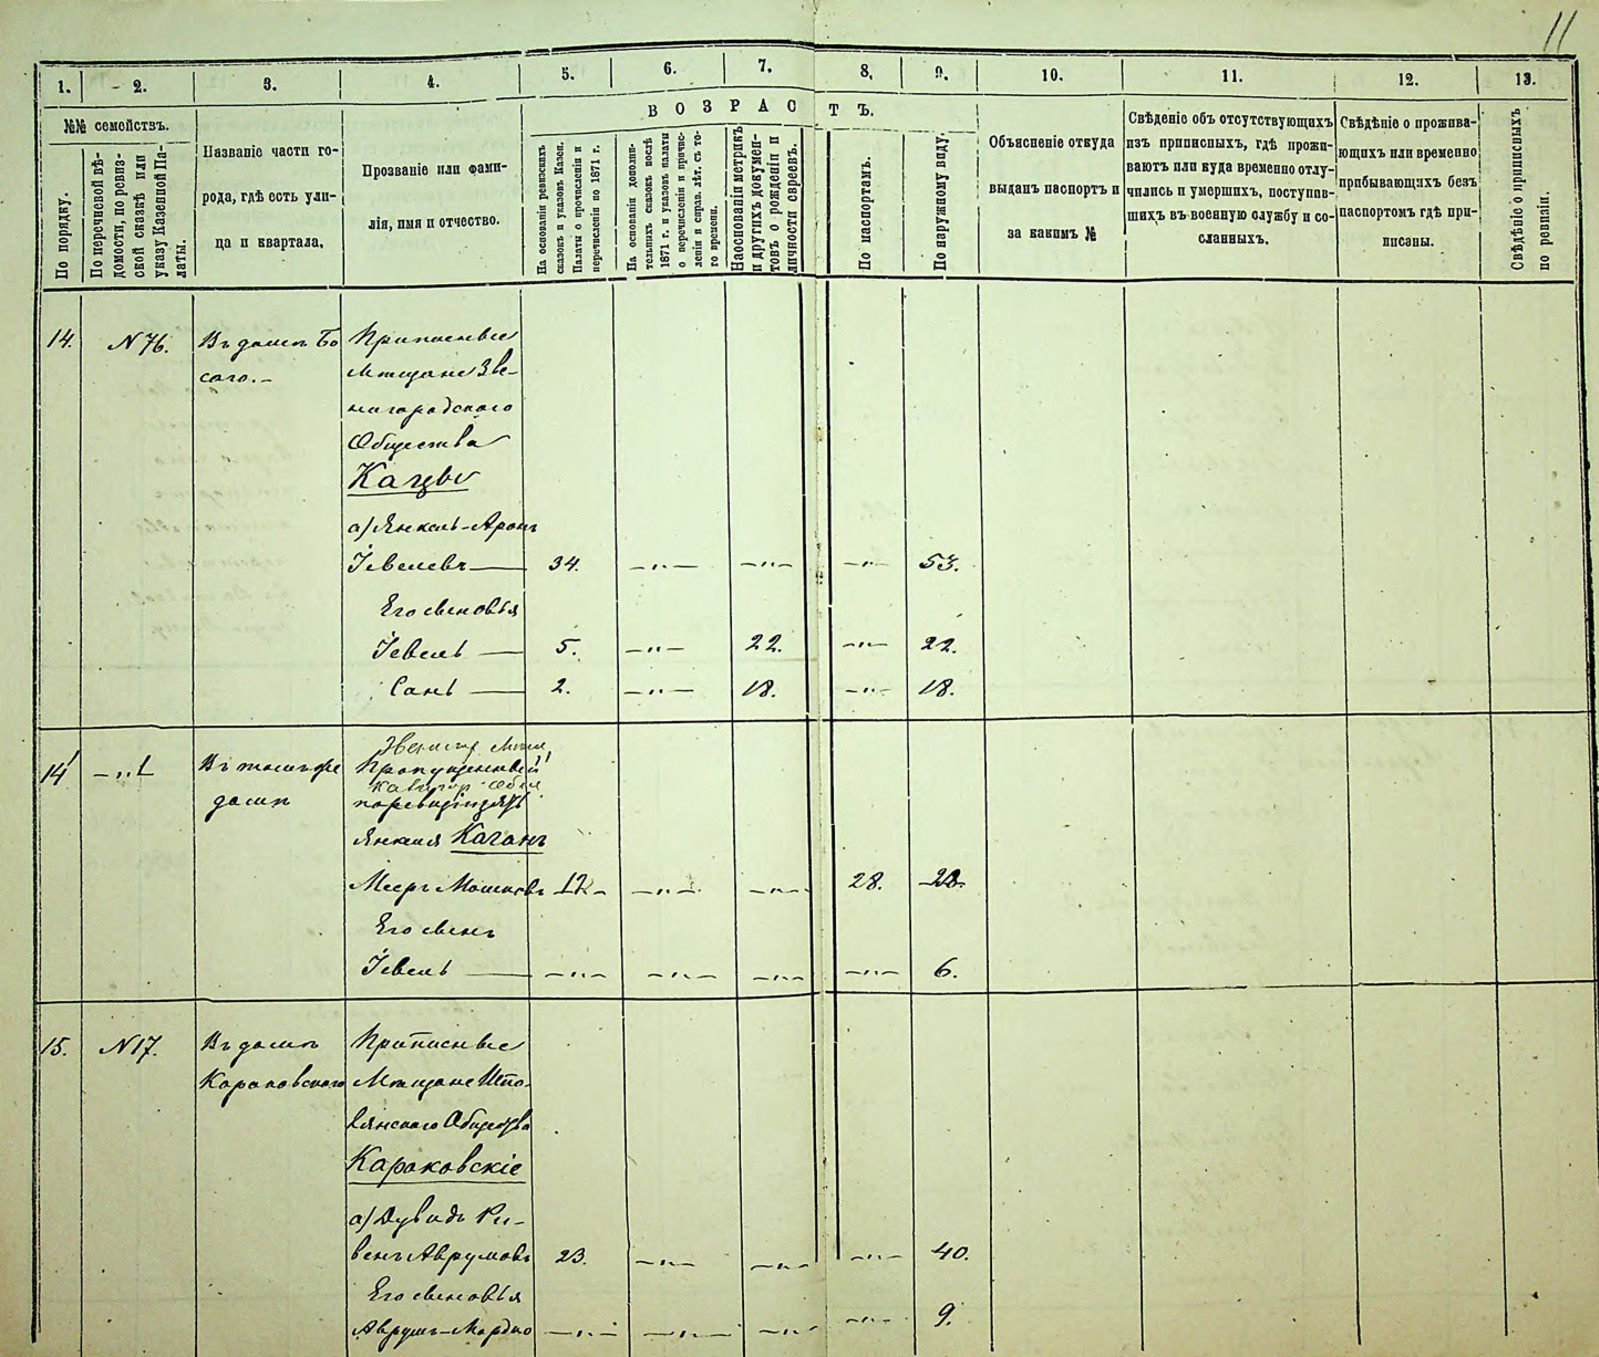 11
1. 2. 3. 4. 5. 6. 7. 8. 9. 10. 11. 12. 13.
№№ семействъ.
По порядку.
По перечневой вѣ-
домости, по ревиз-
ской сказкѣ или
указу Казенной Па-
латы.
Названіе части го-
рода, гдѣ есть ули-
ца и квартала.
Прозваніе или фами-
лія, имя и отчество.
ВОЗРАСТЪ.
На основаніи ревизскихъ
сказокъ и указовъ Казен.
Палаты о причисленіи и
перечисленіи по 1871 г.
На основаніи дополни-
тельныхъ сказокъ послѣ
1871 г. и указовъ палаты
о перечисленіи и причис-
леніи и справ. лѣт. съ то-
го времени.
На основаніи метрикъ
и другихъ докумен-
товъ о рожденіи и
личности евреевъ.
По паспортамъ.
По наружному виду.
Объясненіе откуда
выданъ паспортъ и
за какимъ №
Свѣденіе объ отсутствующихъ
изъ приписныхъ, гдѣ прожи-
ваютъ или куда временно отлу-
чились и умершихъ, поступив-
шихъ въ военную службу и со-
сланныхъ.
Свѣдѣніе о прожива-
ющихъ или временно
прибывающихъ безъ
паспортомъ гдѣ при-
писаны.
Свѣдѣніе о приписныхъ
по ревизіи.
14. N 76. Въ домѣ Бо Приписные
саго.- Мѣщане Зве-
нигородского
Общества
Кацевы
а) Янкель-Аронъ
Іевелевъ 34. -"- -"- -"- 53.
Его сыновья
Іевель 5. -"- 22. -"- 22.
Сань 2. -"- 18. -"- 18.
14' -"- Въ томъ же Пропущенный
домѣ
Янкеля Каганъ
Мееръ Мошковъ 12 -"- -"- 28. 28.
Его сынъ
Іевель -"- -"- -"- -"- 6.
15. N 17. Въ домѣ Приписные
Караковского Мѣщане Шпо-
лянского Общества
Караковскіе
а) Дувидъ Ру-
венъ Аврумовъ 23. -"- -"- -"- 40.
Его сыновья
Аврумъ-Мордко -"- -"- -"- -"- 9.